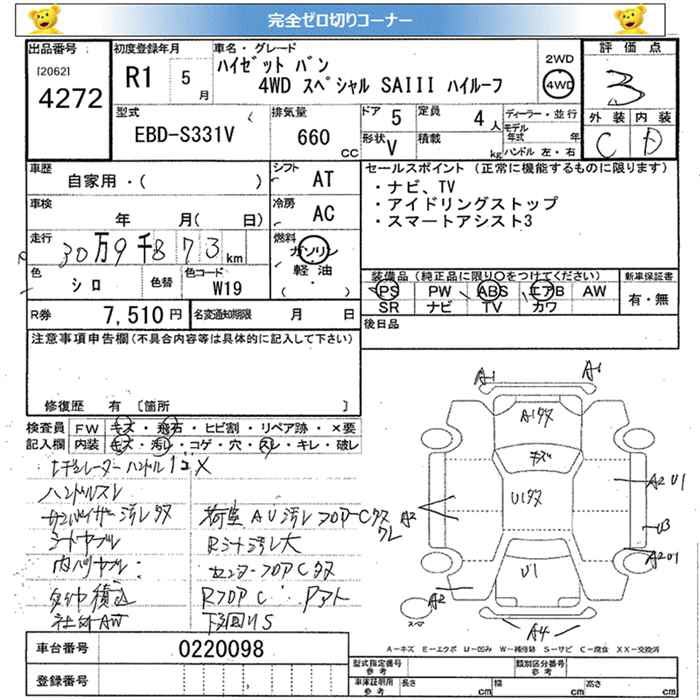 完全ゼロ切りコーナー
出品番号 初度登録年月 車名・グレード 評価点
[2062] R1 5月 ハイゼット バン 2WD 3
4272 4WD スペシャル SAIII ハイルーフ 4WD
型式 排気量 ドア 5 定員 4人 ディーラー・並行 外装 内装
EBD-S331V 660cc 形状 V 積載 kg モデル年式 年 C D
ハンドル 左・右
車歴 自家用・( ) シフト AT セールスポイント (正常に機能するものに限ります)
・ナビ、TV
車検 年 月( 日) 冷房 AC ・アイドリングストップ
・スマートアシスト3
走行 30万9千873km 燃料 ガソリン
軽油
( ・ )
色 シロ 色替 色コード W19
装備品 (純正品に限り○をつけてください) 新車保証書
PS PW ABS エアB AW 有・無
SR ナビ TV カワ
R券 7,510円 名変通知期限 月 日 後日品
注意事項申告欄(不具合内容等は具体的に記入して下さい)
修復歴 有 [箇所
検査員 FW キズ・飛石・ヒビ割・リペア跡・×要
記入欄 内装 キズ・汚レ・コゲ・穴・スレ・キレ・破レ
A1 A1
A1キズ
キズ
U1キズ
U1
A2 U1
U3
A2 U1
A2
A2
A4
スペ
ハンドルスレ
サンバイザー汚レキズ 荷室AU汚レ フロアーCキズ
クレ
シートヤブレ Rシート汚レ大
内ハリヤブレ センターフロアCキズ
RフロアC
社外AW 下回りS
A-キズ E-エクボ U-凹み W-補修跡 S-サビ C-腐食 XX-交換済
車台番号 0220098
登録番号
型式指定番号 参考 類別区分番号 参考
車庫証明用 参考 長さ cm 幅 cm 高さ cm